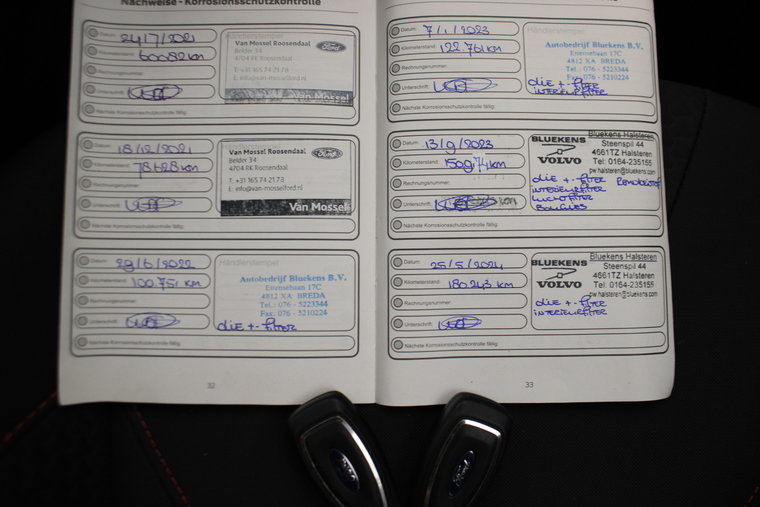 Nachweise - Korrosionsschutzkontrolle
Datum: 24/7/2021
Kilometerstand: 60082 km
Rechnungsnummer:
Unterschrift:
Nächste Korrosionsschutzkontrolle fällig:
Händlerstempel
Van Mossel Roosendaal
Belder 34
4704 RK Roosendaal
T: +31 165 74 21 78
E: info@van-mosselford.nl
Ford
Van Mossel
Datum: 18/12/2021
Kilometerstand: 78628 km
Rechnungsnummer:
Unterschrift:
Nächste Korrosionsschutzkontrolle fällig:
Van Mossel Roosendaal
Belder 34
4704 RK Roosendaal
T: +31 165 74 21 78
E: info@van-mosselford.nl
Ford
Van Mossel
Datum: 29/6/2022
Kilometerstand: 100.751 km
Rechnungsnummer:
Unterschrift:
Nächste Korrosionsschutzkontrolle fällig:
Händlerstempel
Autobedrijf Bluekens B.V.
Ettensebaan 17C
4812 XA BREDA
Tel.: 076 - 5223344
Fax: 076 - 5210224
olie +- filter
32
Datum: 7/1/2023
Kilometerstand: 122.761 km
Rechnungsnummer:
Unterschrift:
Nächste Korrosionsschutzkontrolle fällig:
Händlerstempel
Autobedrijf Bluekens B.V.
Ettensebaan 17C
4812 XA BREDA
Tel.: 076 - 5223344
Fax: 076 - 5210224
olie +- filter
interieurfilter
Datum: 13/9/2023
Kilometerstand: 150974 km
Rechnungsnummer:
Unterschrift:
Nächste Korrosionsschutzkontrolle fällig:
BLUEKENS
VOLVO
Bluekens Halsteren
Steenspil 44
4661TZ Halsteren
Tel: 0164-235155
pw.halsteren@bluekens.com
olie +- filter
interieurfilter Remvloeistof
luchtfilter
Bougies
Datum: 25/5/2024
Kilometerstand: 180243 km
Rechnungsnummer:
Unterschrift:
Nächste Korrosionsschutzkontrolle fällig:
BLUEKENS
VOLVO
Bluekens Halsteren
Steenspil 44
4661TZ Halsteren
Tel: 0164-235155
pw.halsteren@bluekens.com
olie +- filter
interieurfilter
33
Ford
Ford